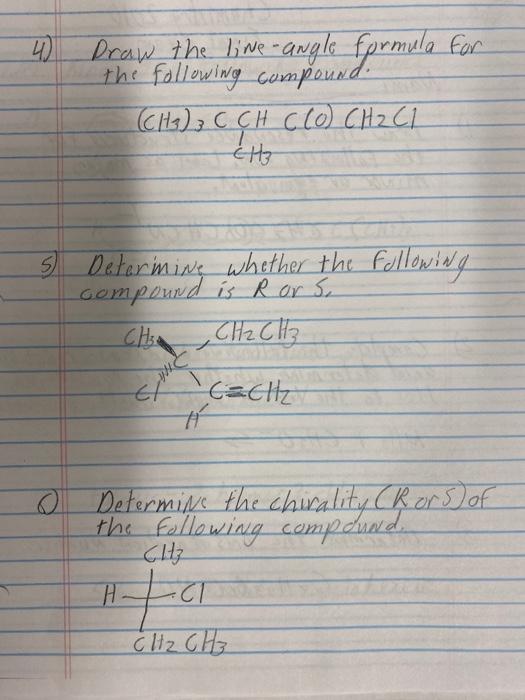 4) Draw the line-angle formula for
the following compound.
(CH3)3 C CH C(O) CH2Cl
CH3
5) Determine whether the following
compound is R or S.
CH3 CH2CH3
C
Cl C=CH2
H
6) Determine the chirality (R or S) of
the following compound.
CH3
H Cl
CH2 CH3